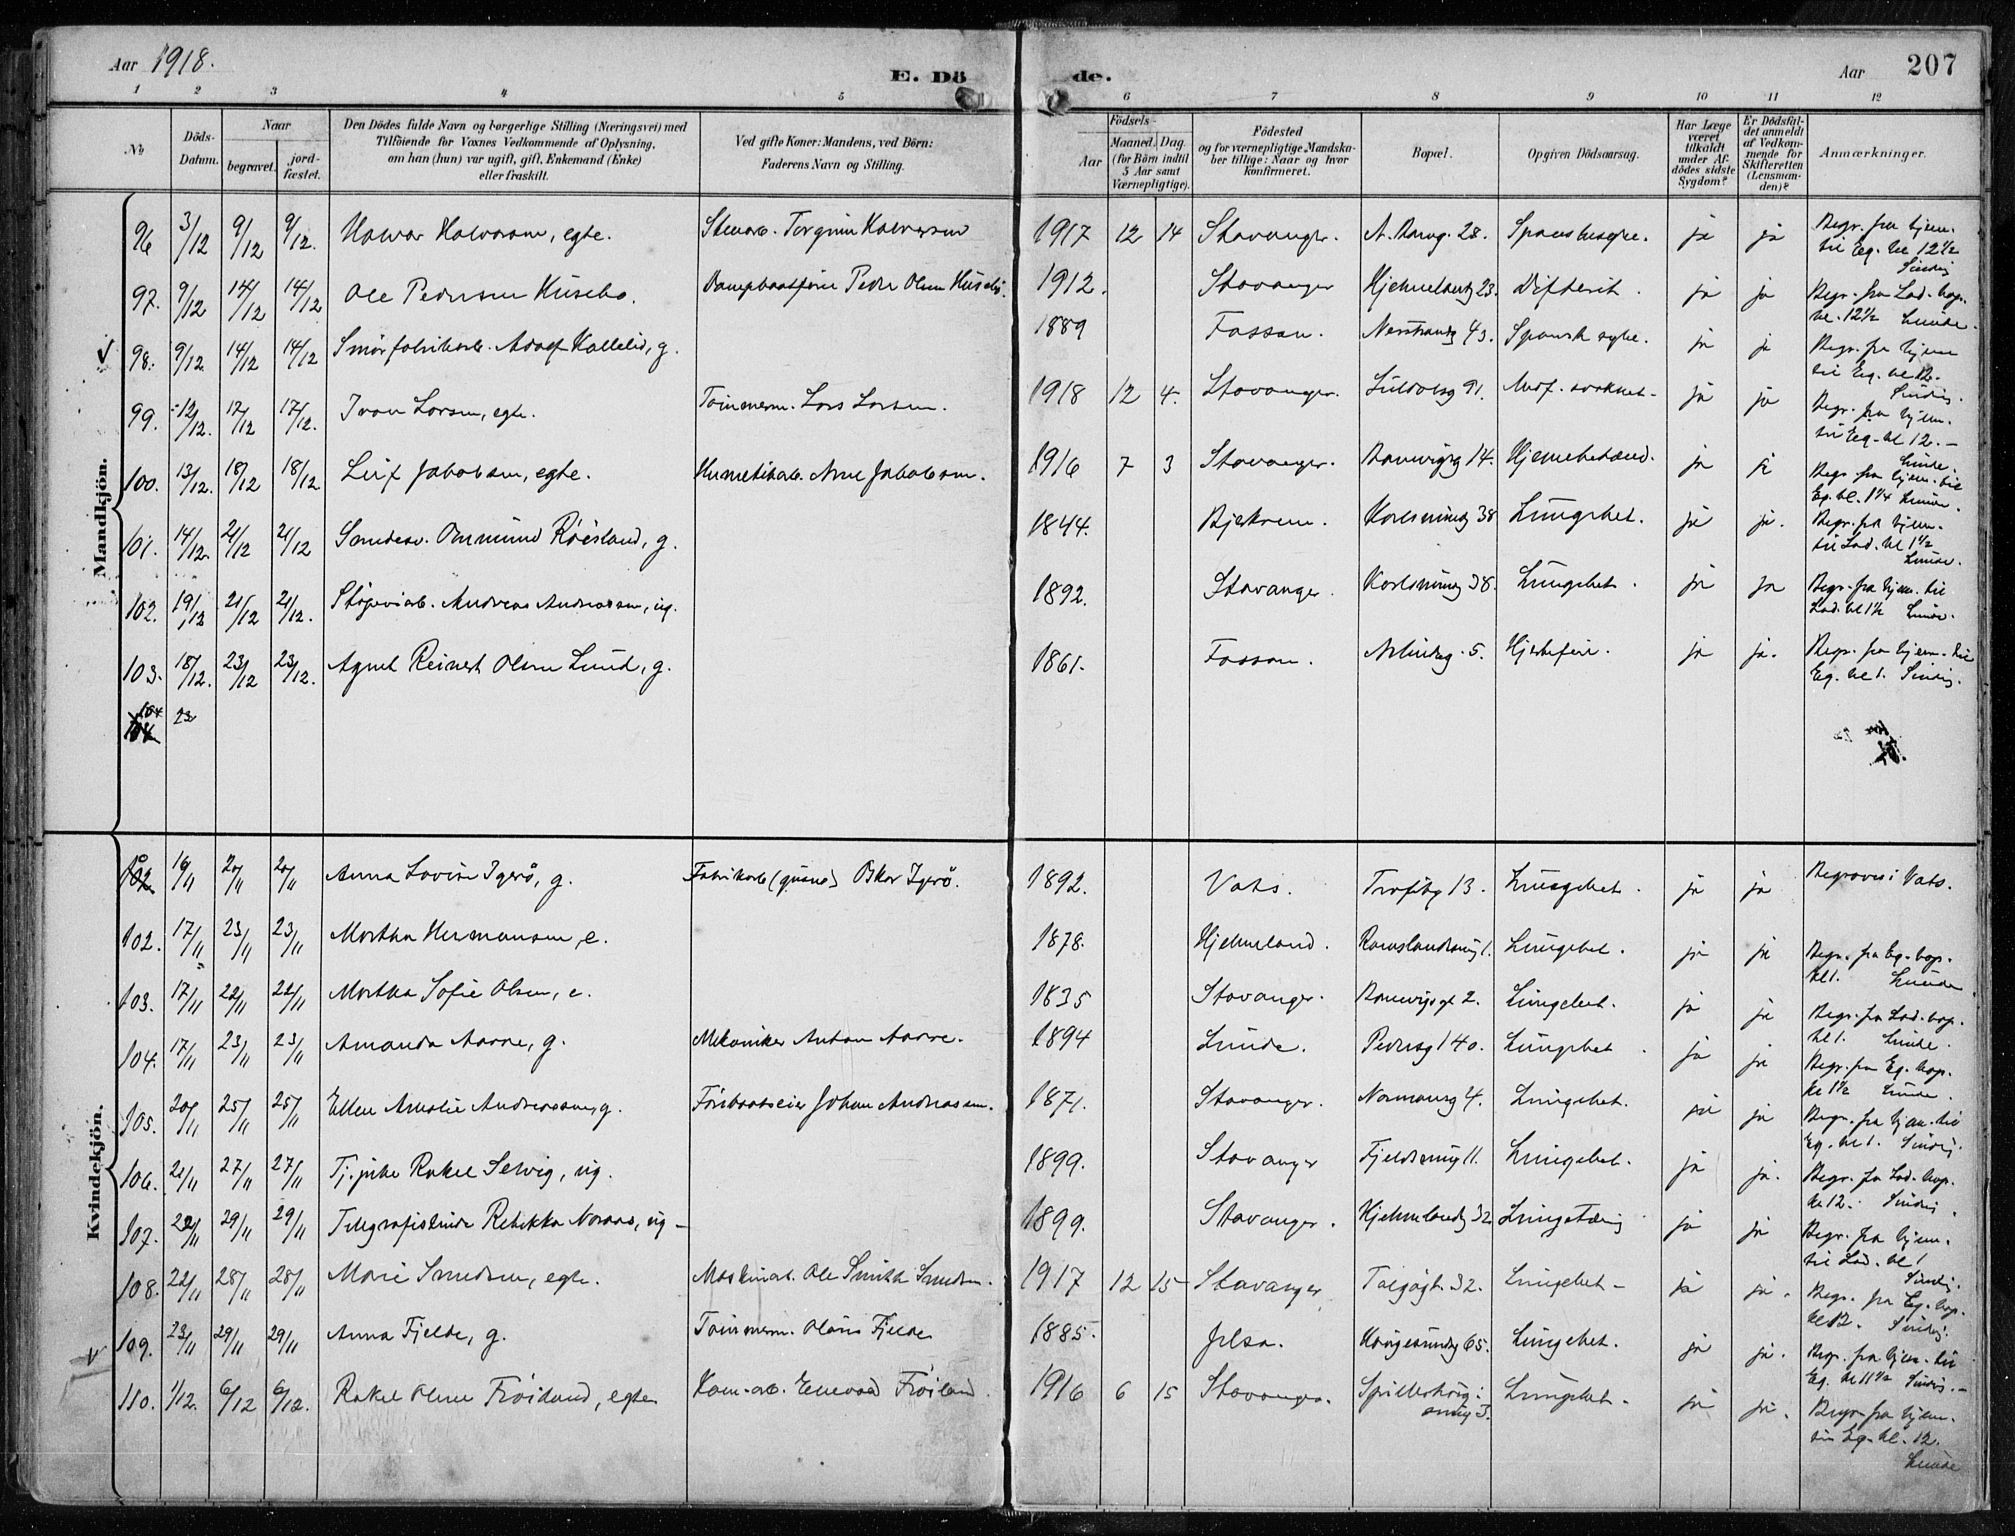 Aar 1918.
E. Dö
de.
Aar 207
1 2 3 4 5 6 7 8 9 10 11 12
No.
Döds-Datum.
Naar
begravet.
jordfæstet.
Den Dödes fulde Navn og borgerlige Stilling (Næringsvei) med
Tilföiende for Voxnes Vedkommende af Oplysning,
om han (hun) var ugift, gift, Enkemand (Enke)
eller fraskilt.
Ved gifte Koner: Mandens, ved Börn:
Faderens Navn og Stilling.
Födsels-
Aar
Maaned. Dag.
(for Börn indtil
5 Aar samt
Værnepligtige).
Födested
og for værnepligtige Mandska-
ber tillige: Naar og hvor
konfirmeret.
Bopæl.
Opgiven Dödsaarsag.
Har Læge
været
tilkaldt
under Af-
dödes sidste
Sygdom?
Er Dödsfal-
det anmeldt
af Vedkom-
mende for
Skifteretten
(Lensman-
den)?
Anmærkninger.
Mandkjön.
96 3/12 9/12 9/12. Halvar Halvorsen, egte. Stenarb. Torginn Halvorsen 1917 12 14 Stavanger. 28. Spansksyke. ja ja Begr. fra hjem. til Eg. kl 12 1/2 Sinding
97. 9/12 14/12 14/12 Ole Pedersen Husebø. Dampbaatfører Peder Olsen Husebø. 1912. Stavanger Hjelmelandg 23. Difterit. ja ja Begr. fra Lad. kap. kl. 12 1/2 Lunde.
98. 9/12 14/12 14/12 Smørfabrikarb. Adolf Kallelid, g. 1889 Fossan. Nerstrandg 43. Spansk syke. ja ja Begr. fra hjem til Eg. kl 12. Sinding.
99. 12/12. 17/12 17/12. Ivan Larsen, egte. Tømmerm. Lars Larsen. 1918 12 4. Stavanger. 91. Medf. svakhet. ja ja Begr. fra hjem. til Eg. kl 12. Lunde.
100. 13/12. 18/12 18/12. Leif Jakobsen, egte. Hermetikarb. Arne Jakobsen. 1916 7 3 Stavanger. Banevigsg 14. Hjernebetænd. ja ja Begr. fra hjem. til Eg. kl. 1 1/4 Lunde.
101. 14/12. 21/12 21/12 Ommund Røisland, g. 1844. Bjerkrem. Karlsmindeg 38 Lungebet. ja ja. Begr. fra hjem. til Lad. kl 1 1/2 Lunde.
102. 19/12 21/12 21/12. Andreas Andreassen, ug. 1892. Stavanger. Karlsmindeg 38. Lungebet. ja ja Begr. fra hjem. til Lad. kl 1 1/2 Lunde.
103. 18/12. 23/12 23/12. Reinert Olsen Lund, g. 1861. Fossan. 5. Hjertefeil. ja ja. Begr. fra hjem. til Eg. kl 1. Sinding.
104 23
Kvindekjön.
16/11 20/11 20/11 Anna Lovise Tyerø, g. Fabrikarb (guano) Oskar Tyerø. 1892. Vats. 13. Lungebet. ja ja Begraves i Vats.
102. 17/11 23/11 23/11 Martha Hermansen, e. 1878. Hjelmeland. 1. Lungebet. ja ja Begr. fra Eg. kap. kl 1. Lunde
103. 17/11 22/11 22/11 Martha Sofie Olsen, e. 1835 Stavanger. Banevigsgt 2. Lungebet. ja ja Begr. fra Lad. kap. kl 1. Lunde.
104. 17/11 23/11 23/11 Amanda Aarre, g. Mekaniker Anton Aarre. 1894 Lunde. Pedersg 140. Lungebet. ja ja Begr. fra Eg. kap. kl 1 1/2 Lunde.
105. 20/11 25/11 25/11 Ellen Amalie Andreassen, g. Førebaatseier Johan Andreassen. 1871. Stavanger. Normansg 4. Lungebet. ja ja Begr. fra hjem. til Eg. kl 1. Sinding.
106. 21/11 27/11 27/11 Tj.pike Rakel Selvig, ug. 1899. Stavanger Fjeldsmug 11. Lungebet. ja ja. Begr. fra Lad. kap. kl 12. Sinding.
107. 22/11 29/11 29/11 Telegrafistinde Rebekka Noraas, ug. 1899. Stavanger. Hjelmelandg 32 Lungetæring ja ja Begr. fra hjem. til Lad. kl 1 Sinding.
108. 22/11 28/11 28/11 Marie Smedsen, egte. Maskinarb. Ole Smith Smedsen. 1917 12 15 Stavanger 32. Lungebet. ja ja. Begr. fra Eg. kap. kl 12. Sinding.
109. 23/11 29/11 29/11 Anna Fjelde, g. Tømmerm. Olaus Fjelde 1885. Jelsa. Haugesundsg 65. Lungebet. ja ja. Begr. fra hjem. til Eg. kl 11 1/2 Sinding.
110. 1/12. 6/12 6/12. Rakel Oline Frøiland, egte Kom.arb. Enevald Frøiland. 1916 6 15 Stavanger. Spilderhaugsmug 3. Lungebet. ja ja. Begr. fra hjem. til Eg. kl. 12. Lunde